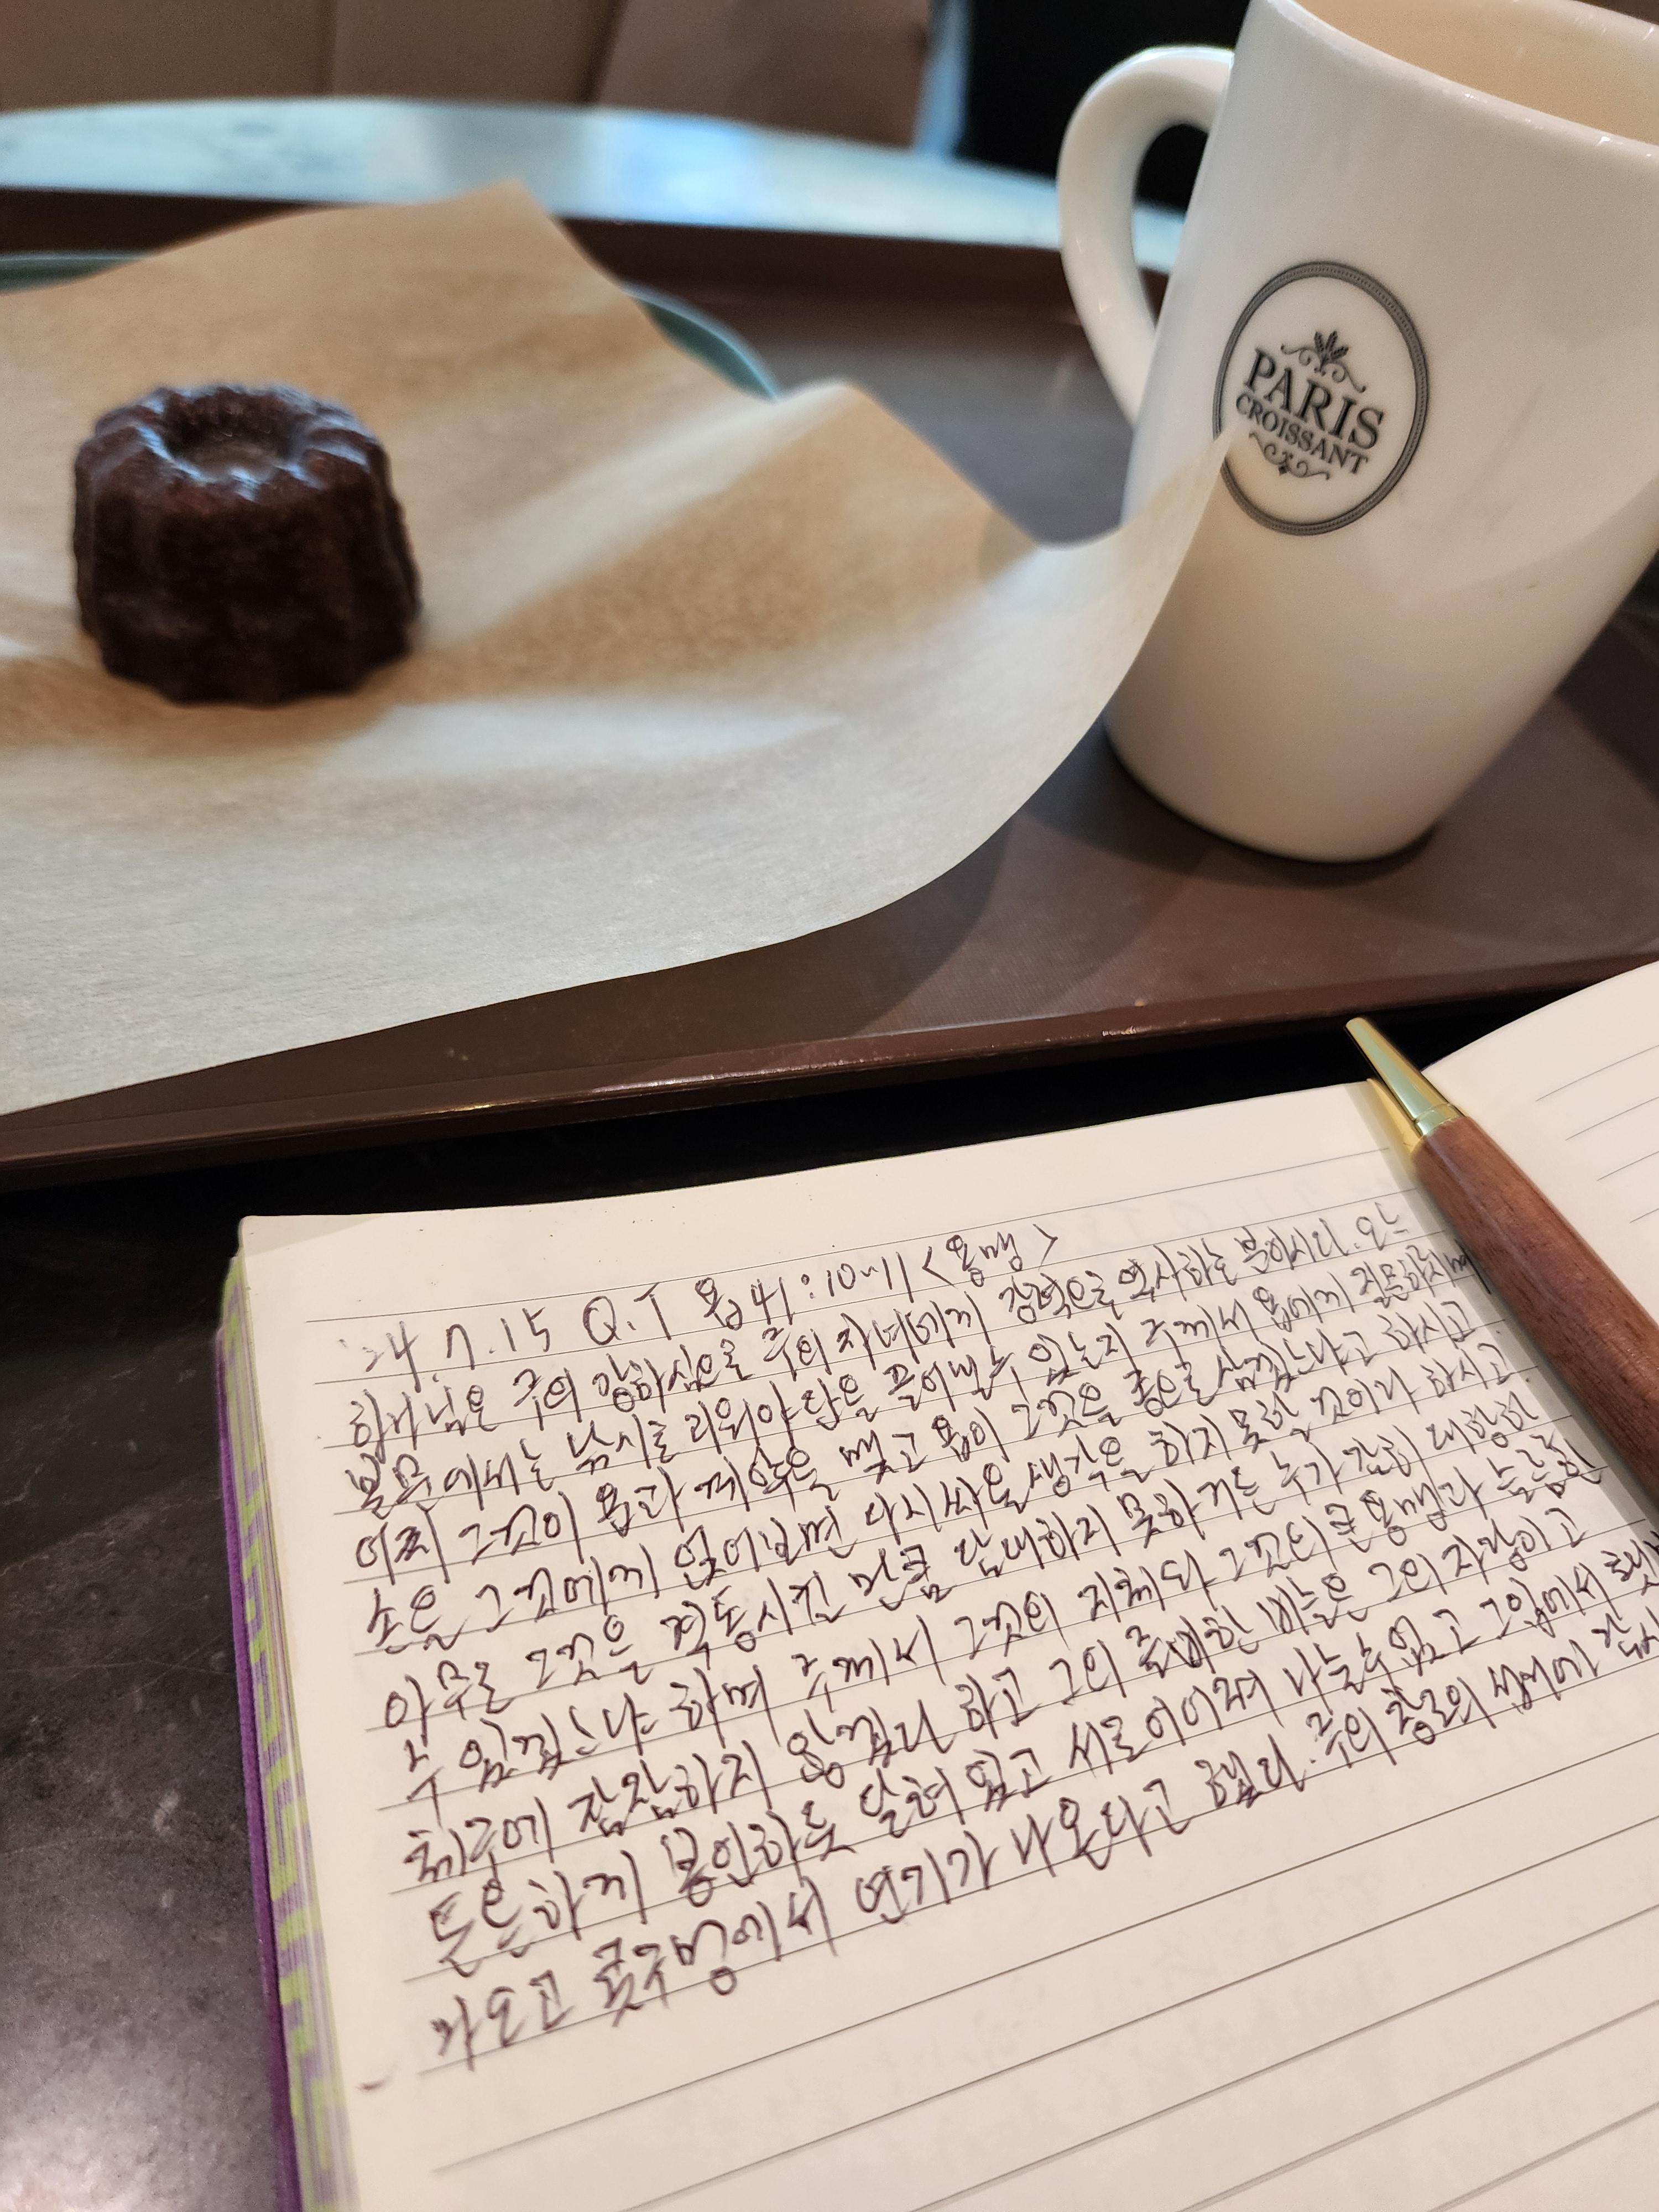 PARIS
CROISSANT
'24. 7. 15 Q.T 욥41:10~11 <용맹>
하나님은 주의 강하심으로 주의 자녀에게 강력으로 역사하는 분이시다. 오늘
본문에서는 낚시로 리워야단을 끌어낼 수 있는지 주께서 욥에게 질문하시며
어찌 그것이 욥과 계약을 맺고 욥이 그것을 종으로 삼겠느냐고 하시고
손을 그것에게 얹어보면 다시 싸울 생각을 하지 못할 것이라 하시고.
아무도 그것을 격동시킬 만큼 담대하지 못하거든 누가 감히 대항할
수 있겠느냐 하며 주께서 그것의 지체와 그것의 큰 용맹과 늠름한
체구에 잠잠하지 않겠다 하고 그의 즐비한 비늘은 그의 자랑이고
튼튼하게 봉인하듯 닫혀 있고 서로 이어져 나눌 수 없고 그 입에서 횃불이
나오고 콧구멍에서 연기가 나온다고 했다. 주의 종로의